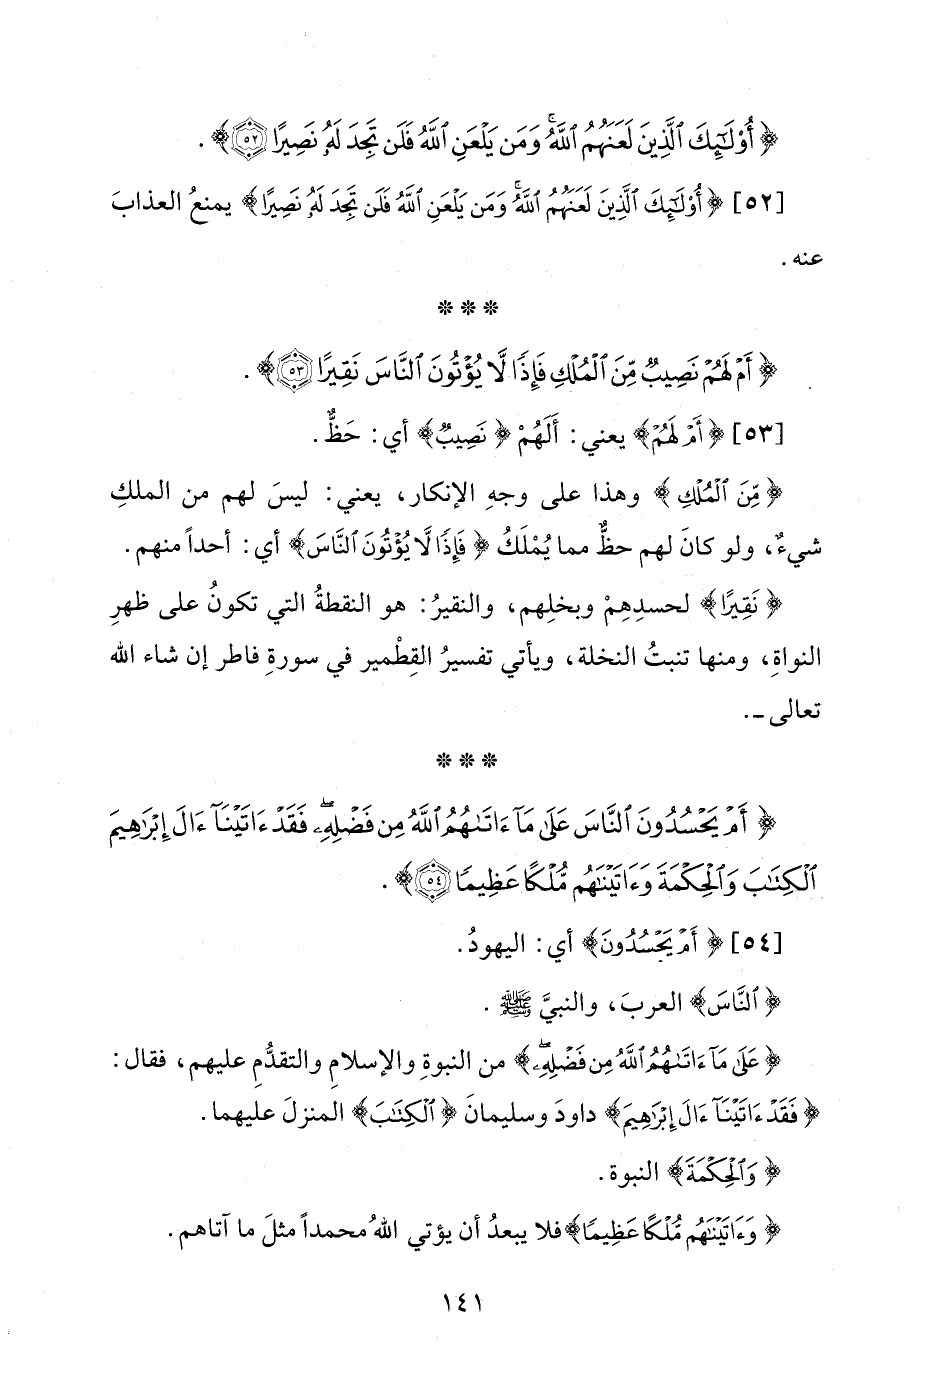 ﴿ أُوْلَٰٓئِكَ ٱلَّذِينَ لَعَنَهُمُ ٱللَّهُۖ وَمَن يَلْعَنِ ٱللَّهُ فَلَن تَجِدَ لَهُۥ نَصِيرًا ۝٥٢ ﴾ .
[٥٢] ﴿ أُوْلَٰٓئِكَ ٱلَّذِينَ لَعَنَهُمُ ٱللَّهُۖ وَمَن يَلْعَنِ ٱللَّهُ فَلَن تَجِدَ لَهُۥ نَصِيرًا ﴾ يمنعُ العذابَ
عنه .
* * *
﴿ أَمْ لَهُمْ نَصِيبٌ مِّنَ ٱلْمُلْكِ فَإِذًا لَّا يُؤْتُونَ ٱلنَّاسَ نَقِيرًا ۝٥٣ ﴾ .
[٥٣] ﴿ أَمْ لَهُمْ ﴾ يعني: أَلَهُمْ ﴿ نَصِيبٌ ﴾ أي: حَظٌّ.
﴿ مِّنَ ٱلْمُلْكِ ﴾ وهذا على وجهِ الإنكار، يعني: ليسَ لهم من الملكِ
شيءٌ، ولو كانَ لهم حظٌّ مما يُمْلَكُ ﴿ فَإِذًا لَّا يُؤْتُونَ ٱلنَّاسَ ﴾ أي: أحداً منهم.
﴿ نَقِيرًا ﴾ لحسدِهِمْ وبخلِهم، والنقيرُ: هو النقطةُ التي تكونُ على ظهرِ
النواةِ، ومنها تنبتُ النخلة، ويأتي تفسيرُ القِطْمير في سورةِ فاطر إن شاء الله
تعالى ـ.
* * *
﴿ أَمْ يَحْسُدُونَ ٱلنَّاسَ عَلَىٰ مَآ ءَاتَىٰهُمُ ٱللَّهُ مِن فَضْلِهِۦۖ فَقَدْ ءَاتَيْنَآ ءَالَ إِبْرَٰهِيمَ
ٱلْكِتَٰبَ وَٱلْحِكْمَةَ وَءَاتَيْنَٰهُم مُّلْكًا عَظِيمًا ۝٥٤ ﴾ .
[٥٤] ﴿ أَمْ يَحْسُدُونَ ﴾ أي: اليهودُ.
﴿ ٱلنَّاسَ ﴾ العربَ، والنبيَّ ﷺ .
﴿ عَلَىٰ مَآ ءَاتَىٰهُمُ ٱللَّهُ مِن فَضْلِهِۦۖ ﴾ من النبوةِ والإسلامِ والتقدُّمِ عليهم، فقال:
﴿ فَقَدْ ءَاتَيْنَآ ءَالَ إِبْرَٰهِيمَ ﴾ داودَ وسليمانَ ﴿ ٱلْكِتَٰبَ ﴾ المنزلَ عليهما.
﴿ وَٱلْحِكْمَةَ ﴾ النبوة.
﴿ وَءَاتَيْنَٰهُم مُّلْكًا عَظِيمًا ﴾ فلا يبعدُ أن يؤتي اللهُ محمداً مثلَ ما آتاهم.
١٤١